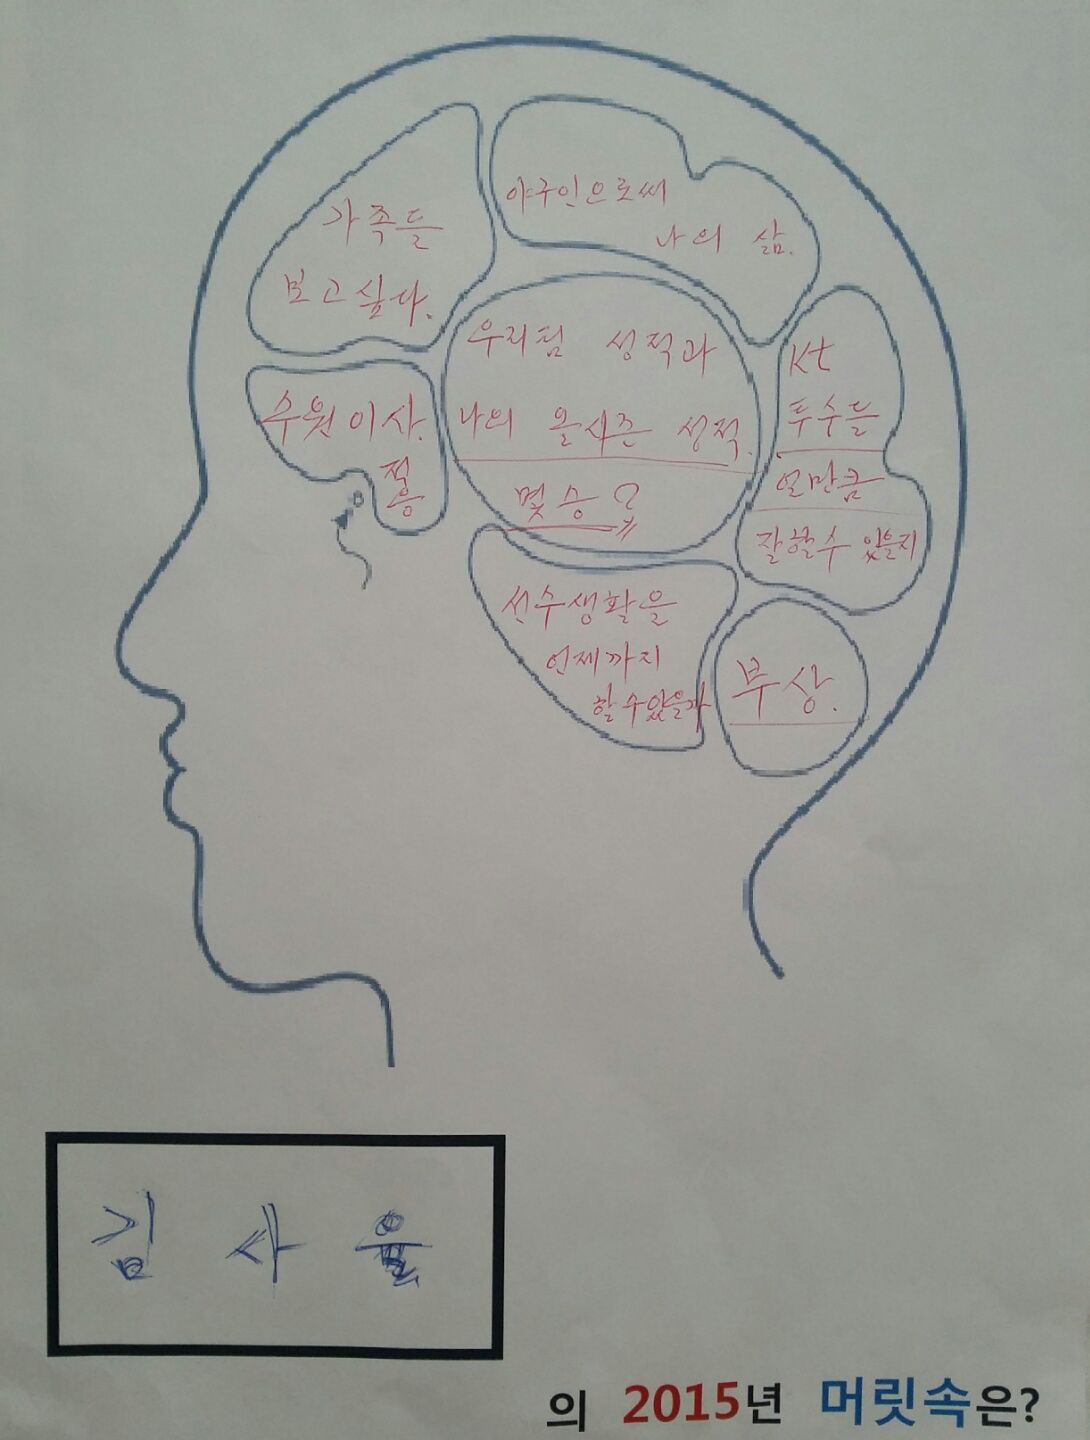 가족들
보고싶다.
야구인으로써
나의 삶.
우리팀 성적과
나의 올시즌 성적.
몇승?
kt
투수들
얼만큼
잘할수 있을지
수원이사.
적응
선수생활을
언제까지
할수있을까
부상.
김사율
의 2015년 머릿속은?